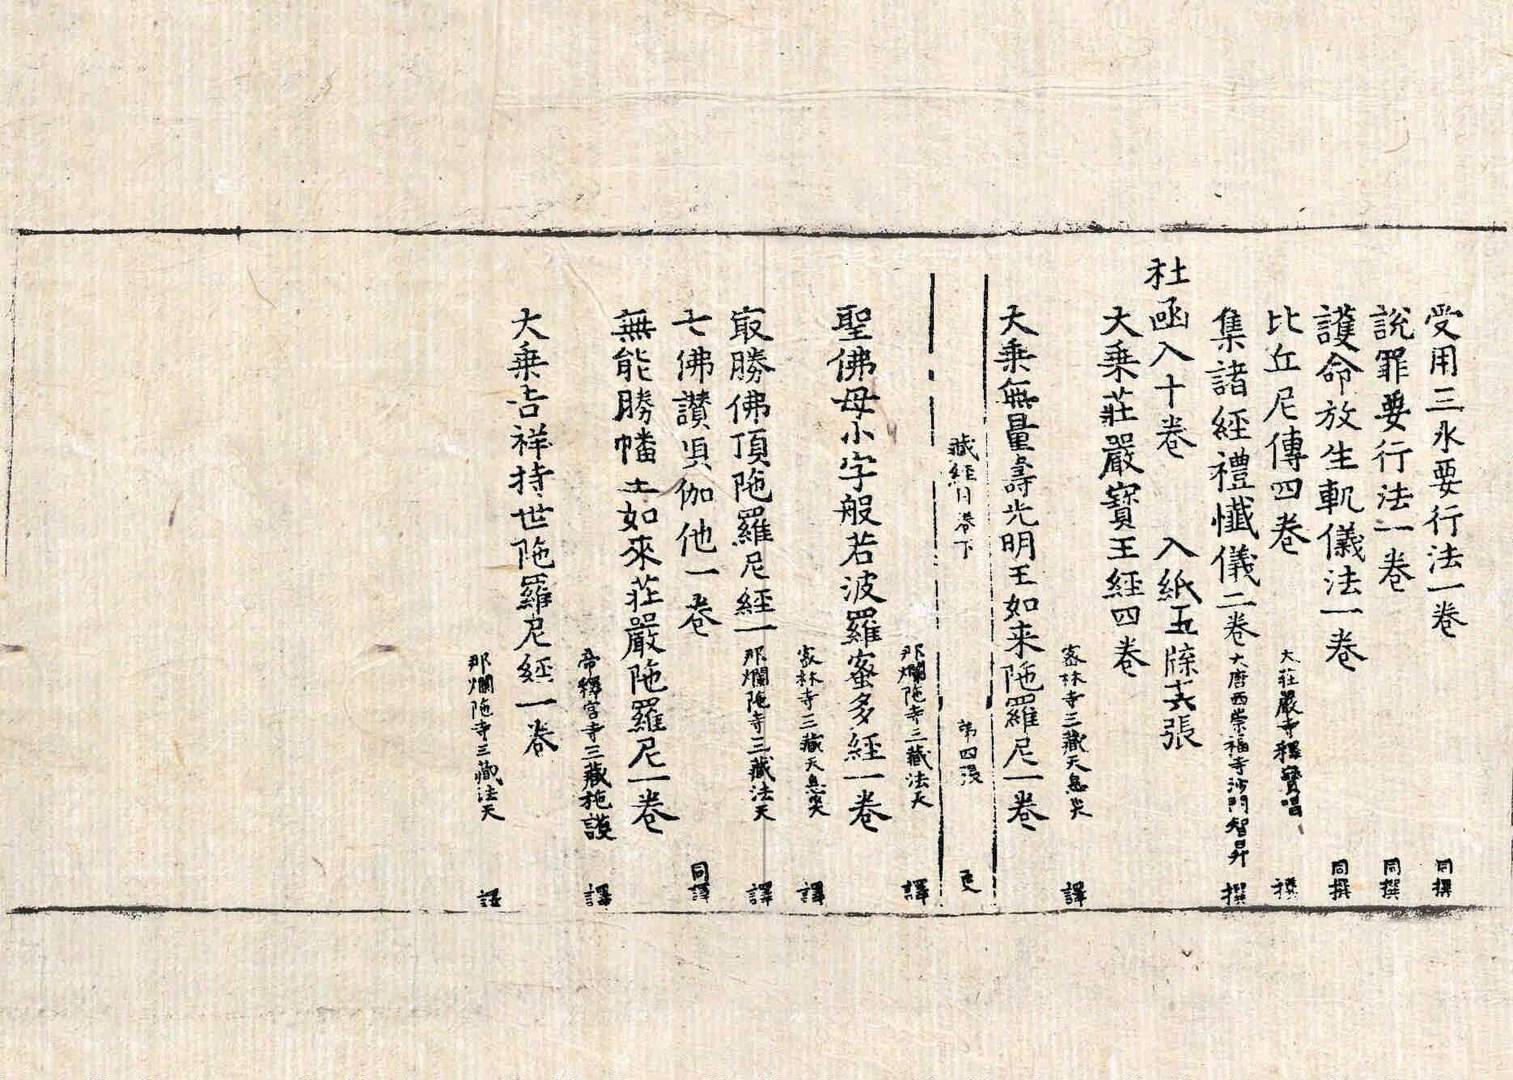 受用三水要行法一卷 同撰
說罪要行法一卷 同撰
護命放生軌儀法一卷 同撰
比丘尼傳四卷 大莊嚴寺釋寶唱 撰
集諸經禮懺儀二卷 大唐西崇福寺沙門智昇 撰
杜函入十卷 入紙五牒六張
大乘莊嚴寶王經四卷 密林寺三藏天息災 譯
大乘無量壽光明王如来陁羅尼一卷 那爛陁寺三藏法天 譯
藏經目卷下 第四張
聖佛母小字般若波羅蜜多經一卷 密林寺三藏天息災 譯
冣勝佛頂陁羅尼經一 那爛陁寺三藏法天 譯
七佛讃唄伽他一卷 同譯
無能勝幡王如來莊嚴陁羅尼一卷 帝釋宮寺三藏施護 譯
大乘吉祥持世陁羅尼經一卷 那爛陁寺三藏法天 譯